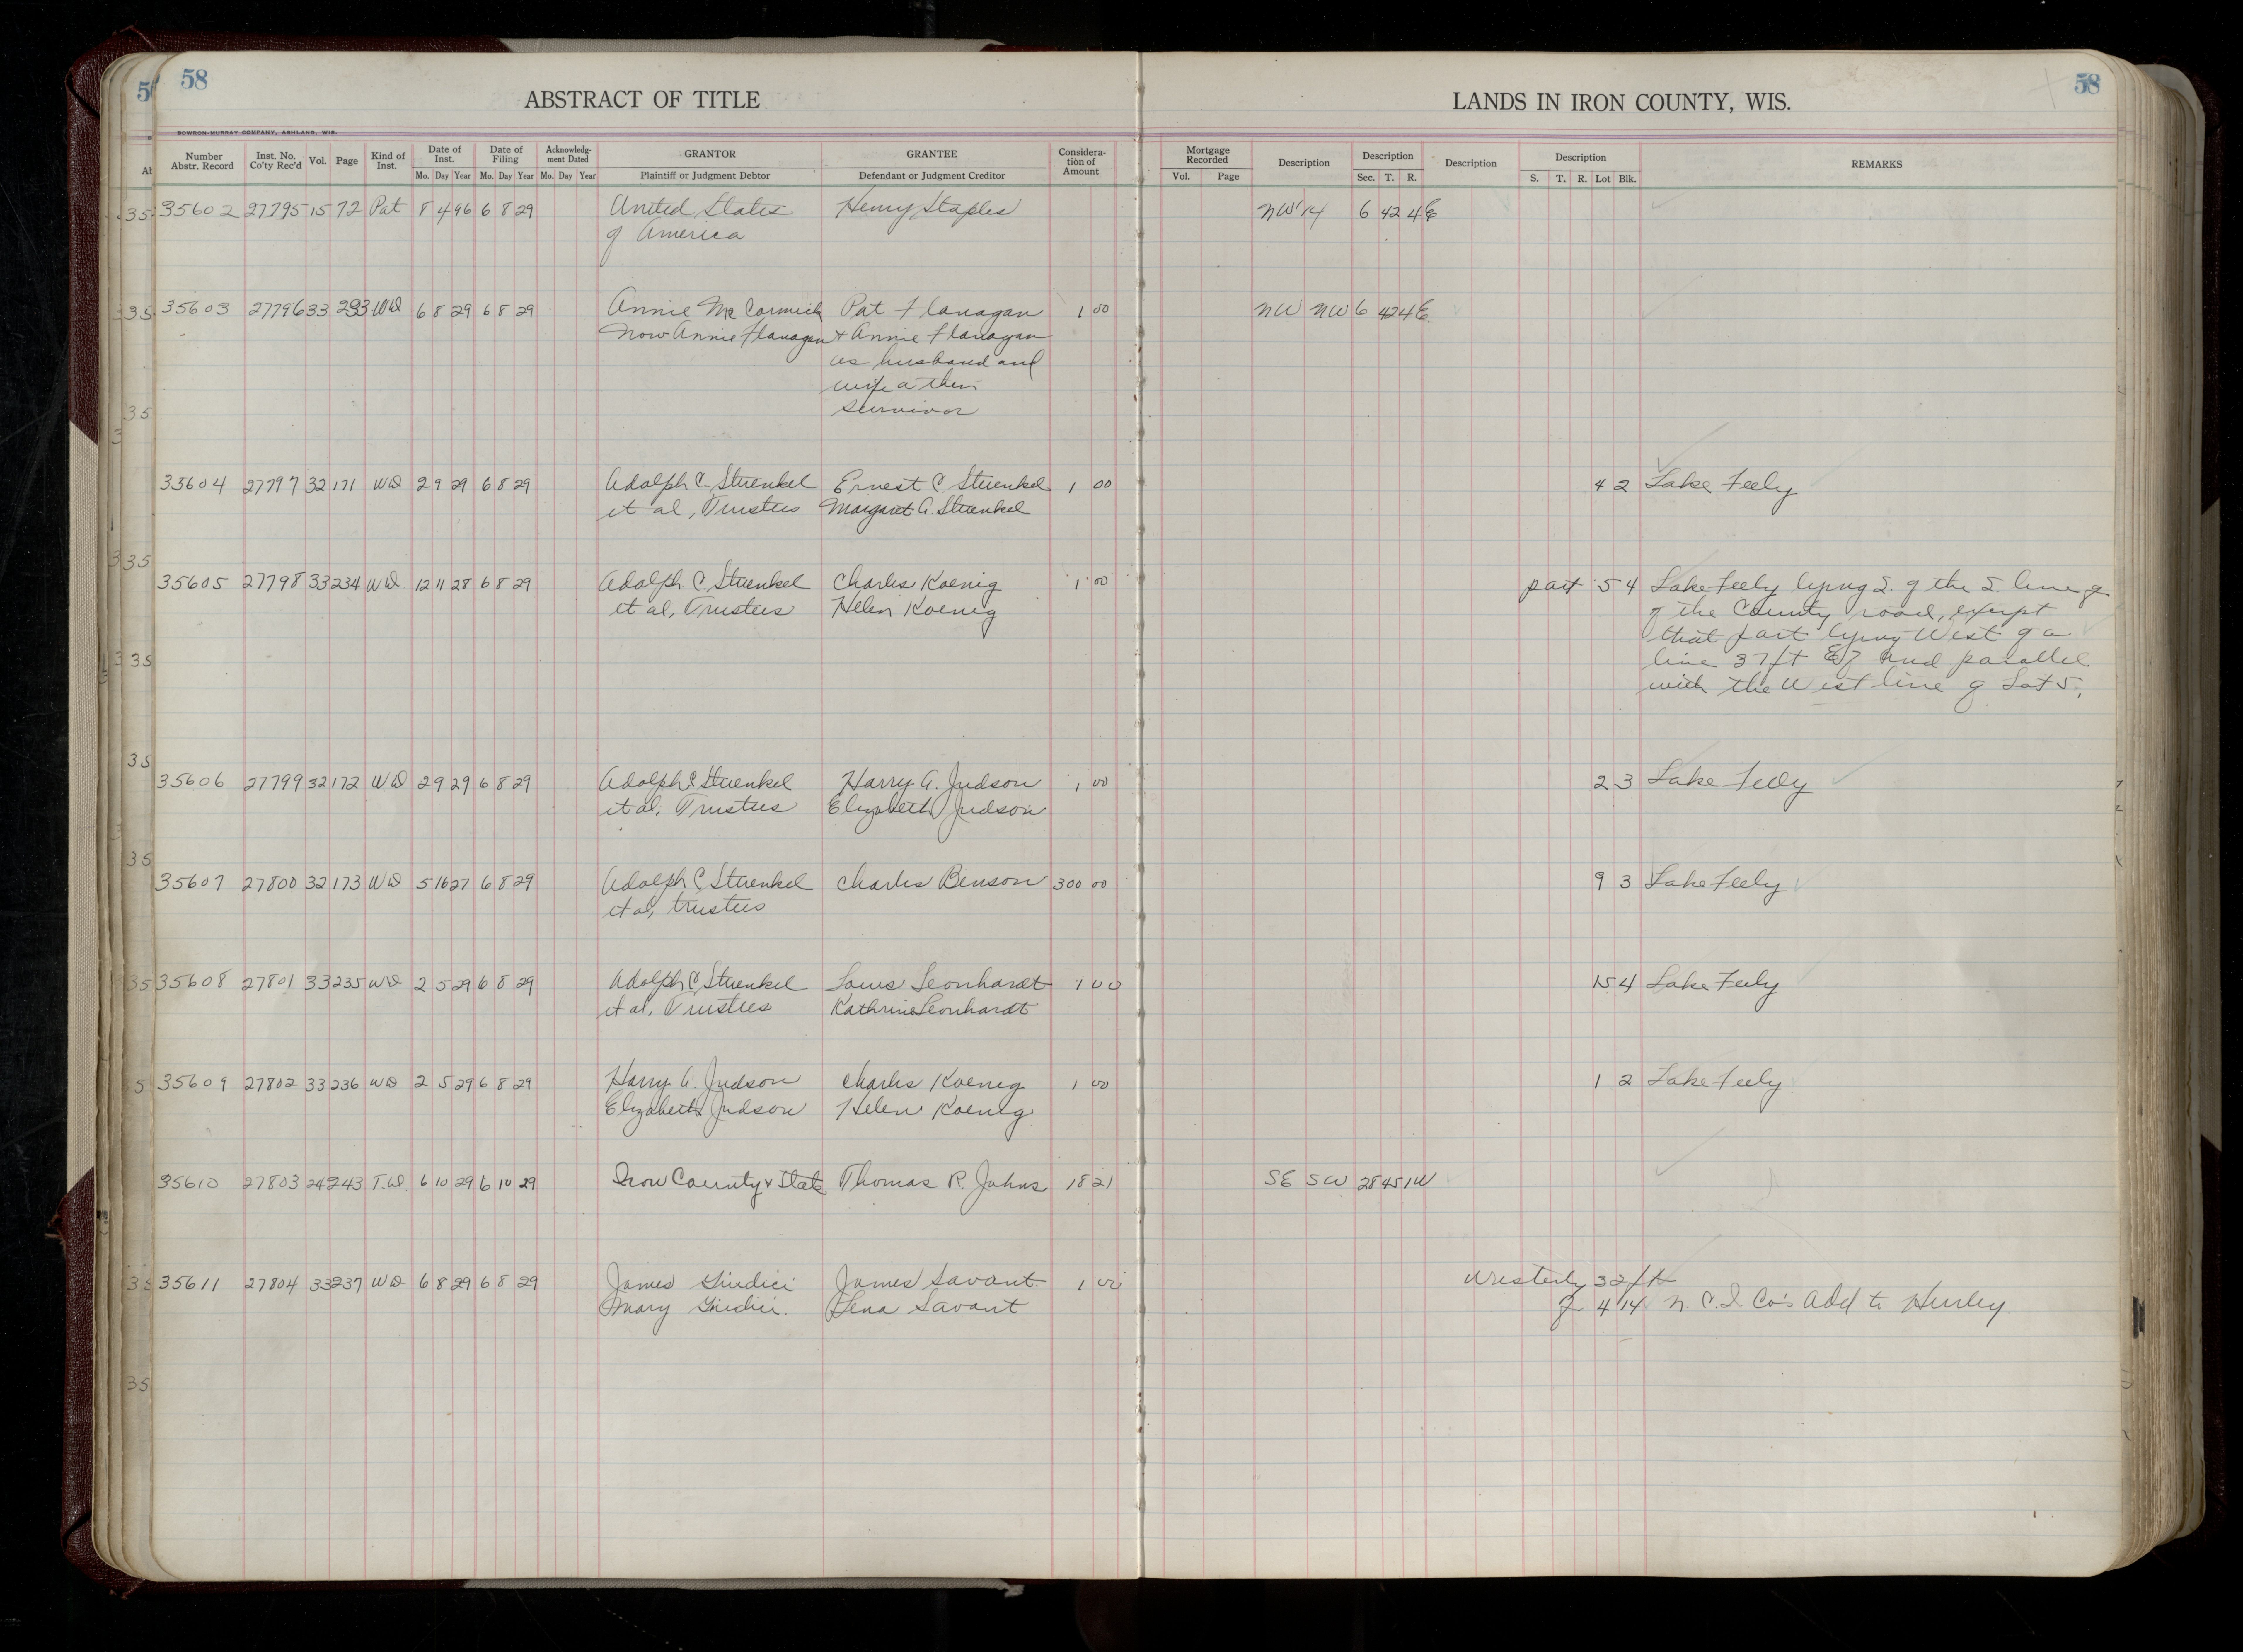 58
ABSTRACT OF TITLE
LANDS IN IRON COUNTY, WIS.
58
BOWRON-MURRAY COMPANY, ASHLAND, WIS.
Number Abstr. Record Inst. No. Co'ty Rec'd Vol. Page Kind of Inst. Date of Inst. Mo. Day Year Date of Filing Mo. Day Year Acknowledg-ment Dated Mo. Day Year GRANTOR Plaintiff or Judgment Debtor GRANTEE Defendant or Judgment Creditor Considera-tion of Amount Mortgage Recorded Vol. Page Description Description Sec. T. R. Description Description S. T. R. Lot Blk. REMARKS
35602 27795 15 72 Pat 8 4 96 6 8 29 United States Henry Staples NW 1/4 6 42 4E
of America
35603 27796 33 233 WD 6 8 29 6 8 29 Annie Mc Cormick Pat Flanagan 1 00 NW NW 6 42 4E
Now Annie Flanagan & Annie Flanagan
as husband and
wife a their
survivor
35604 27797 32 171 WD 2 9 29 6 8 29 Adolph C. Stuenkel Ernest C. Stuenkel 1 00 4 2 Lake Feely
et al, Trustees Margaret A. Stuenkel
35605 27798 33 234 WD 12 11 28 6 8 29 Adolph C. Stuenkel Charles Koenig 1 00 part 5 4 Lake Feely lying S. of the S. line of
et al, Trustees Helen Koenig of the County road, except
that part lying West of a
line 37 ft E of and parallel
with the West line of Lot 5,
35606 27799 32 172 WD 2 9 29 6 8 29 Adolph C. Stuenkel Harry A. Judson 1 00 2 3 Lake Feely
et al, Trustees Elizabeth Judson
35607 27800 32 173 WD 5 16 27 6 8 29 Adolph C. Stuenkel Charles Benson 300 00 9 3 Lake Feely
et al, trustees
35608 27801 33 235 WD 2 5 29 6 8 29 Adolph C. Stuenkel Louis Leonhardt 1 00 15 4 Lake Feely
et al, Trustees Kathrine Leonhardt
35609 27802 33 236 WD 2 5 29 6 8 29 Harry A. Judson Charles Koenig 1 00 1 2 Lake Feely
Elizabeth Judson Helen Koenig
35610 27803 24 243 T.D. 6 10 29 6 10 29 Iron County & State Thomas R. Johns 18 21 SE SW 28 45 1W
35611 27804 33 237 WD 6 8 29 6 8 29 James Giudici James Savant 1 00 Westerly 32 ft
Mary Giudici. Lena Savant of 4 14 N. C. I. Co's Add to Hurley